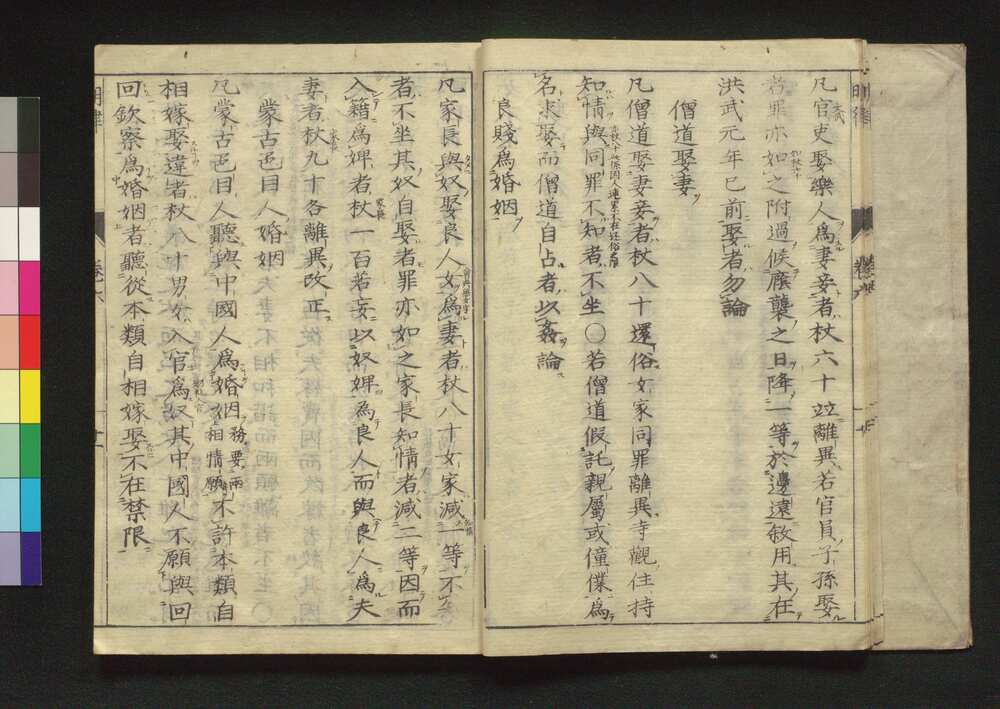 凡官吏娶樂人爲妻妾者杖六十竝離異若官員子孫娶
者罪亦如之附過候廕襲之日降一等於邊遠敘用其在
洪武元年已前娶者勿論
僧道娶妻
凡僧道娶妻妾者杖八十還俗女家同罪離異寺觀住持
知情與同罪不知者不坐〇若僧道假託親屬或僮僕爲
名求娶而僧道自占者以姦論
良賤爲婚姻
凡家長與奴娶良人女爲妻者杖八十女家減一等不知
者不坐其奴自娶者罪亦如之家長知情者減二等因而
入籍爲婢者杖一百若妄以奴婢爲良人而與良人爲夫
妻者杖九十各離異改正
蒙古色目人婚姻
凡蒙古色目人聽與中國人爲婚姻務要兩相情願不許本類自
相嫁娶違者杖八十男女入官爲奴其中國人不願與回
回欽察爲婚姻者聽從本類自相嫁娶不在禁限
明律
卷六